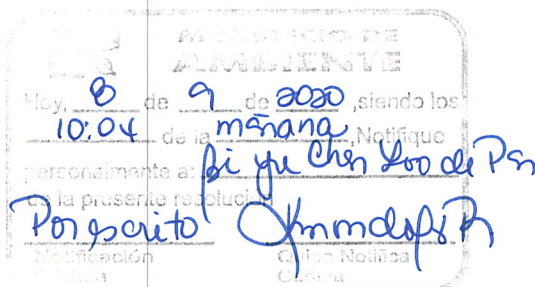 MINISTERIO DE
AMBIENTE
Hoy, 8 de 9 de 2020, siendo los
10:04 de la mañana, Notifique
personalmente a:
de la presente resolución
Por escrito
Notificación Quien Notifica
Cédula Cédula